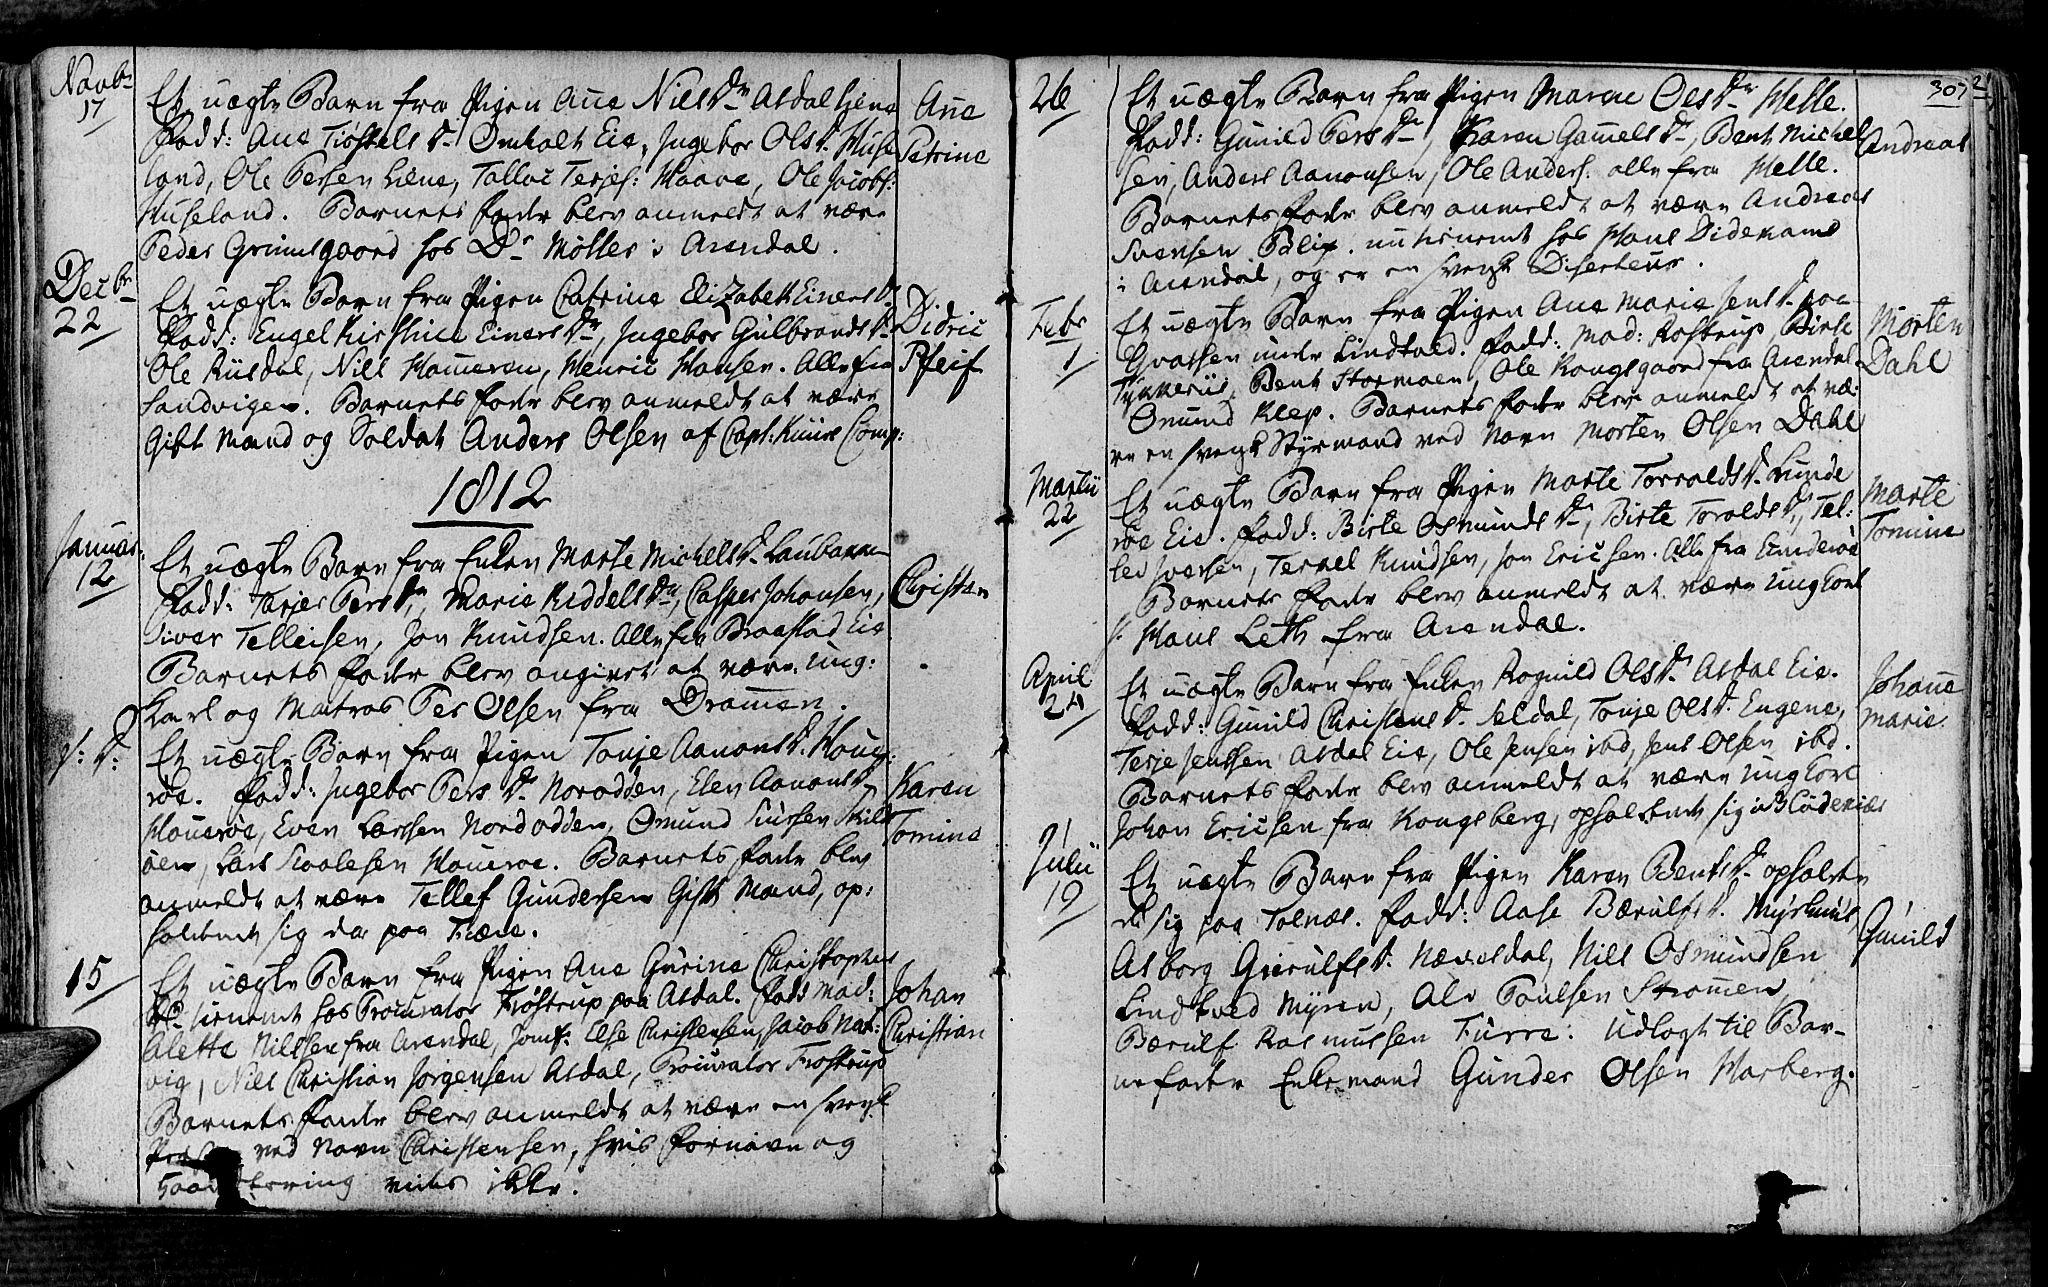 Novbr
17
Et uægte Barn fra Pigen Ane Niels Dr Asdal tjene
Fadd: Ane Tiøstels D. Omholt Eie, Ingebor Ols D. Huse
land, Ole Persen Liene, Tallac Terjes: Haave, Ole Jacobs:
Huseland. Barnets Fader blev anmeldt at være
Peder Grimsgaard hos Dr Møller i Arendal.
Ane
Petrine
Decbr
22
Et uægte Barn fra Pigen Catrine Elizabeth Einers D.
Fadd: Engel Kirstine Einers Dr, Ingebor Gulbrands D.
Ole Riisdal, Niels Hameren, Henric Hansen. Alle fra
Sandvigen. Barnets Fader blev anmeldt at være
Gift Mand og Soldat Anders Olsen af Capt: Kniphs Comp:
Didric
Pfeif
1812
Januar:
12
Et uægte Barn fra Enken Marte Michels D. Laubakken
Fadd: Tarjer Pers Dr, Marie Kiddels Dr, Casper Johansen,
Siver Telleisen, Jon Knudsen. Alle fra Braastad Eie
Barnets Fader blev angivet at være Ung:
karl og Matros Per Olsen fra Dramen.
Christen
s: D:
Et uægte Barn fra Pigen Tonje Aanons D. Houg:
røe. Fadd: Ingebor Pers Dr Norodden, Elen Aanons D.
Houerøe, Even Larsen Nordodden, Omund Siversen Kild
øen, Lars Roalesen Houeroe. Barnets Fader blev
anmeldt at være Tellef Gundersen Gift Mand, op:
holdende sig da paa Træde.
Karen
Tomine
15
Et uægte Barn fra Pigen Ane Gurine Christophers
Dr tienende hos Procurator Frøstrup paa Asdal. Fadd Mad:
Alette Nielsen fra Arendal, Jomf: Else Christensen, Jacob Nar:
vig, Niels Christian Jørgensen Asdal, Procurator Frostrup
Barnets Fader blev anmeldt at være en svensk
ved Navn Christensen, hvis Fornavn og
Haandtering vides ikke.
Johan
Christian
307
26
Et uægte Barn fra Pigen Maren Oles Dr Helle.
Fadd: Gunild Pers Dr, Karen Gamels Dr, Bent Michel
sen, Anders Aanonsen, Ole Anders: alle fra Helle.
Barnets Fader blev anmeldt at være Andreas
Svensen Blix. nu tienende hos Hans Didekams
i Arendal, og er en svensk Deserteur.
Andreas
Febr
1
Et uægte Barn fra Pigen Ane Marie Jens D. paa
Gvassen under Lindtved. Fadd: Mad: Rostrup, Birte
Tykkeriis, Bent Stormoen, Ole Kongsgaard fra Arendal
Omund Klep. Barnets Fader blev anmeldt at væ:
re en svensk Styrmand ved Navn Morten Olsen Dahl
Morten
Dahl
Martii
22
Et uægte Barn fra Pigen Marte Torvalds D. Lunde
røe Eie. Fadd: Birte Osmunds Dr, Birte Torolds D., Tel:
lev Iversen, Terkel Knudsen, Jon Ericsen. Alle fra Lunderøe
Barnets Fader blev anmeldt at være Ungkarl
s. Hans Leth fra Arendal.
Marte
Tomine
April
24
Et uægte Barn fra Enken Rognild Ols Dr Asdal Eie.
Fadd: Gunild Christens D. Seldal, Tonje Ols D. Engene,
Terje Jensen Asdal Eie, Ole Jensen ibd, Jens Olsen ibd.
Barnets Fader blev anmeldt at være Ungkarl
Johan Ericsen fra Kongsberg, opholdende sig i Blødekiær
Johane
Marie
Julii
19
Et uægte Barn fra Pigen Karen Bents Dr opholden
de sig paa Tolnæs. Fadd: Aase Bærulfs D. Myrhuus,
Asborg Gierulfs D. Næversdal, Niels Osmundsen
Lindtved Myren, Alv Poulsen Strømmen,
Bærulf Rasmussen Furre: Udlagt til Bar-
nefader Enkemand Gunder Olsen Harberg.
Gunild